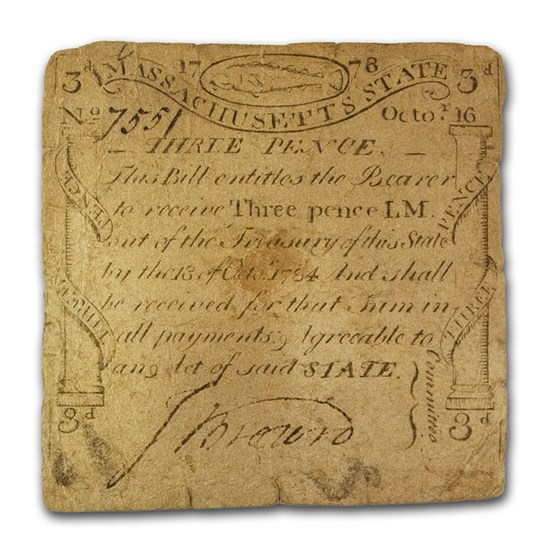 3d 17 78 3d
MASSACHUSETTS STATE
No 7551 Octor. 16
THREE PENCE.
This Bill entitles the Bearer
to receive Three pence LM.
out of the Treasury of this State
by the 18 of Octr. 1784 And shall
be received for that Sum in
all payments, Agreeable to
an Act of said STATE.
PENCE
THREE
PENCE
THREE
Committee.
3d 3d
J Brown